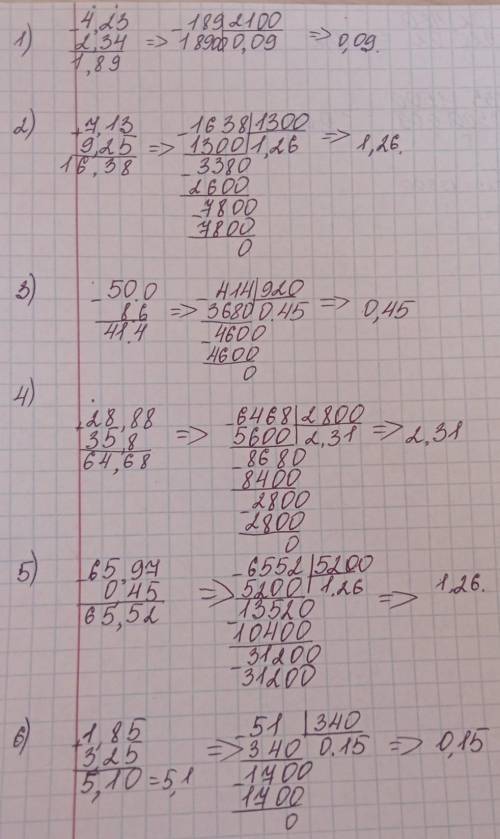 1) -4,23 -189 2100
2,34 => 18900 0,09 => 0,09.
1,89
2) +7,13 -1638 1300
9,25 => 1300 1,26 => 1,26.
16,38 -3380
2600
-7800
7800
0
3) -50.0 -414 920
8.6 => 3680 0.45 => 0,45
41.4 -4600
4600
0
4)
+28,88 -6468 2800
35,8 => 5600 2,31 => 2,31
64,68 -8680
8400
-2800
2800
0
5) -65,97 -6552 5200
0,45 => 5200 1.26 => 1,26.
65,52 -13520
10400
-31200
31200
6) +1,85 -51 340
3,25 => 340 0.15 => 0,15
5,10=5,1 -1700
1700
0